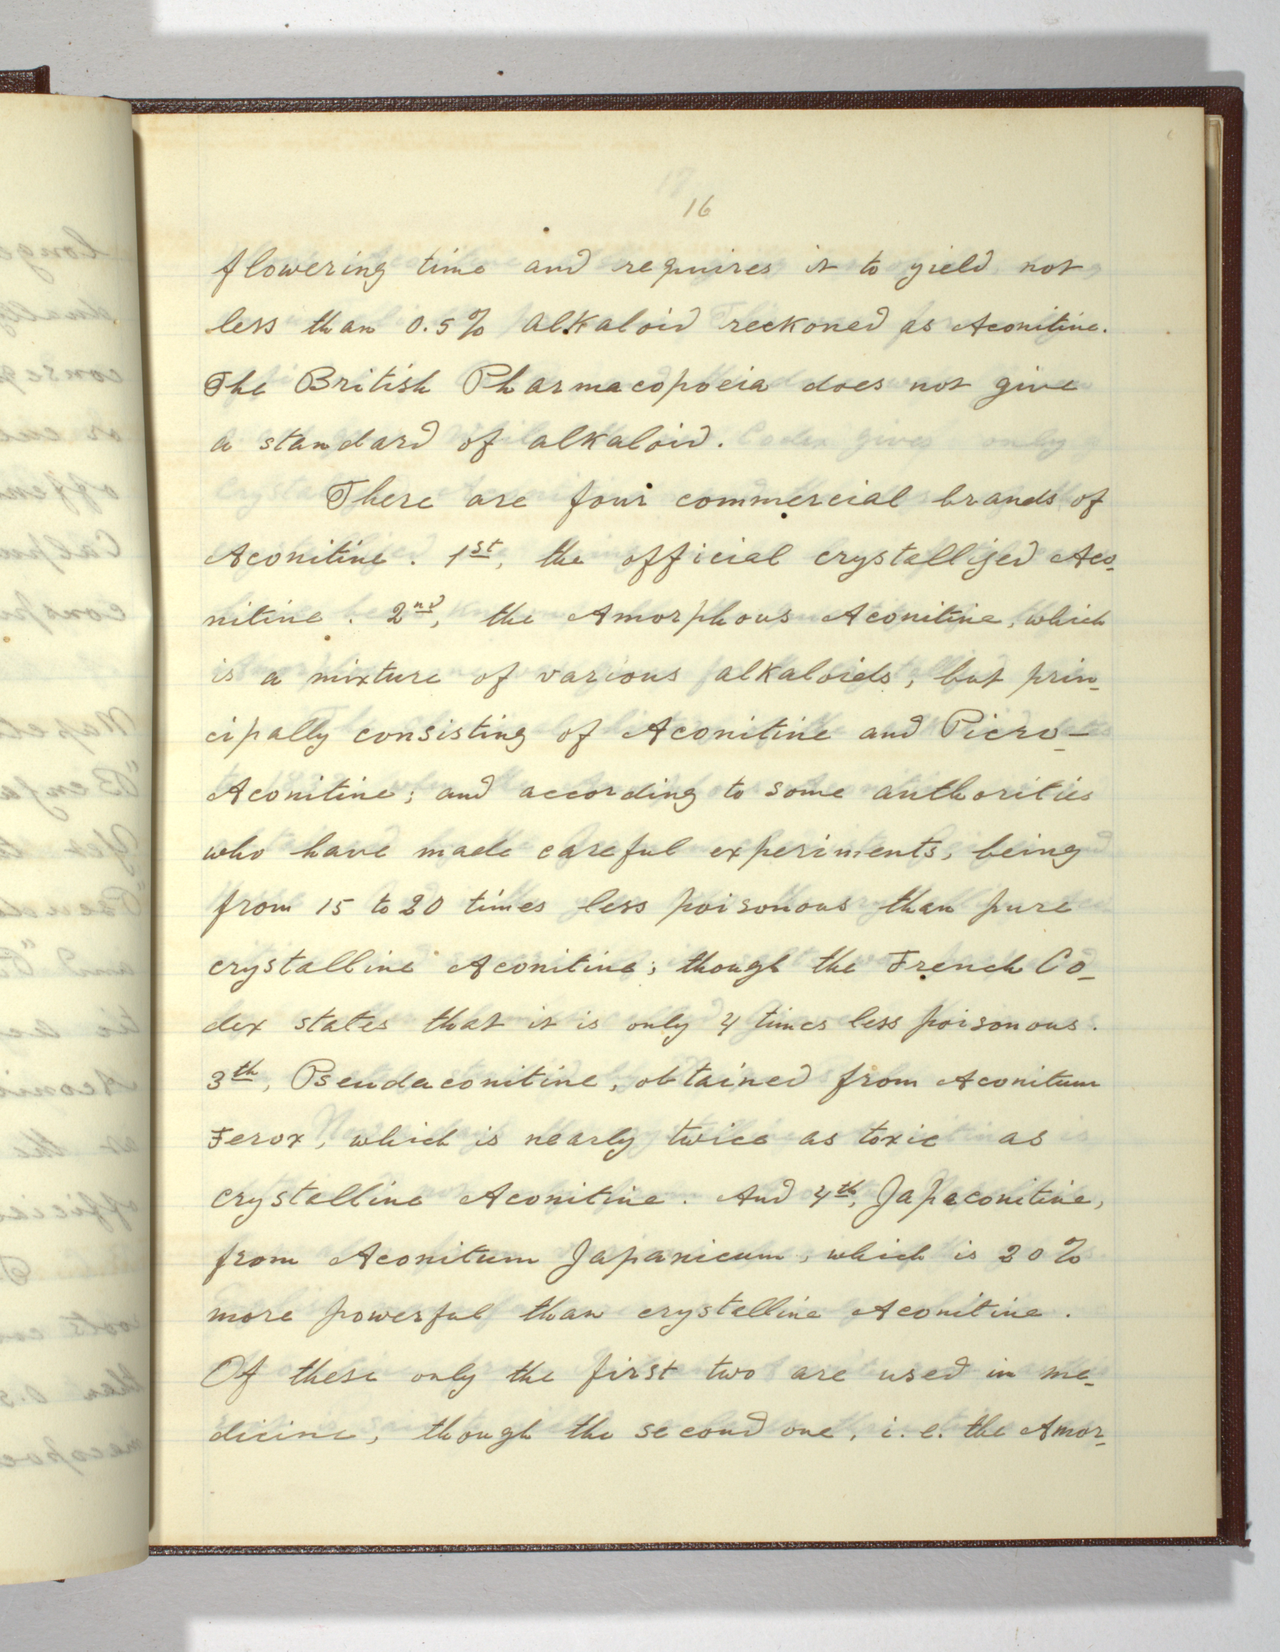 16
flowering time and requires it to yield not
less than 0.5% alkaloid reckoned as Aconitine.
The British Pharmacopoeia does not give
a standard of alkaloid.
There are four commercial brands of
Aconitine. 1st, the official crystallized Aco-
nitine. 2nd, the Amorphous Aconitine, which
is a mixture of various alkaloids, but prin-
cipally consisting of Aconitine and Picro-
Aconitine; and according to some authorities
who have made careful experiments, being
from 15 to 20 times less poisonous than pure
crystalline Aconitine; though the French Co-
dex states that it is only 4 times less poisonous.
3th, Pseudaconitine, obtained from Aconitum
Ferox, which is nearly twice as toxic as
crystalline Aconitine. And 4th, Japaconitine,
from Aconitum Japanicum, which is 20%
more powerful than crystalline Aconitine.
Of these only the first two are used in me-
dicine, though the second one, i.e. the Amor-